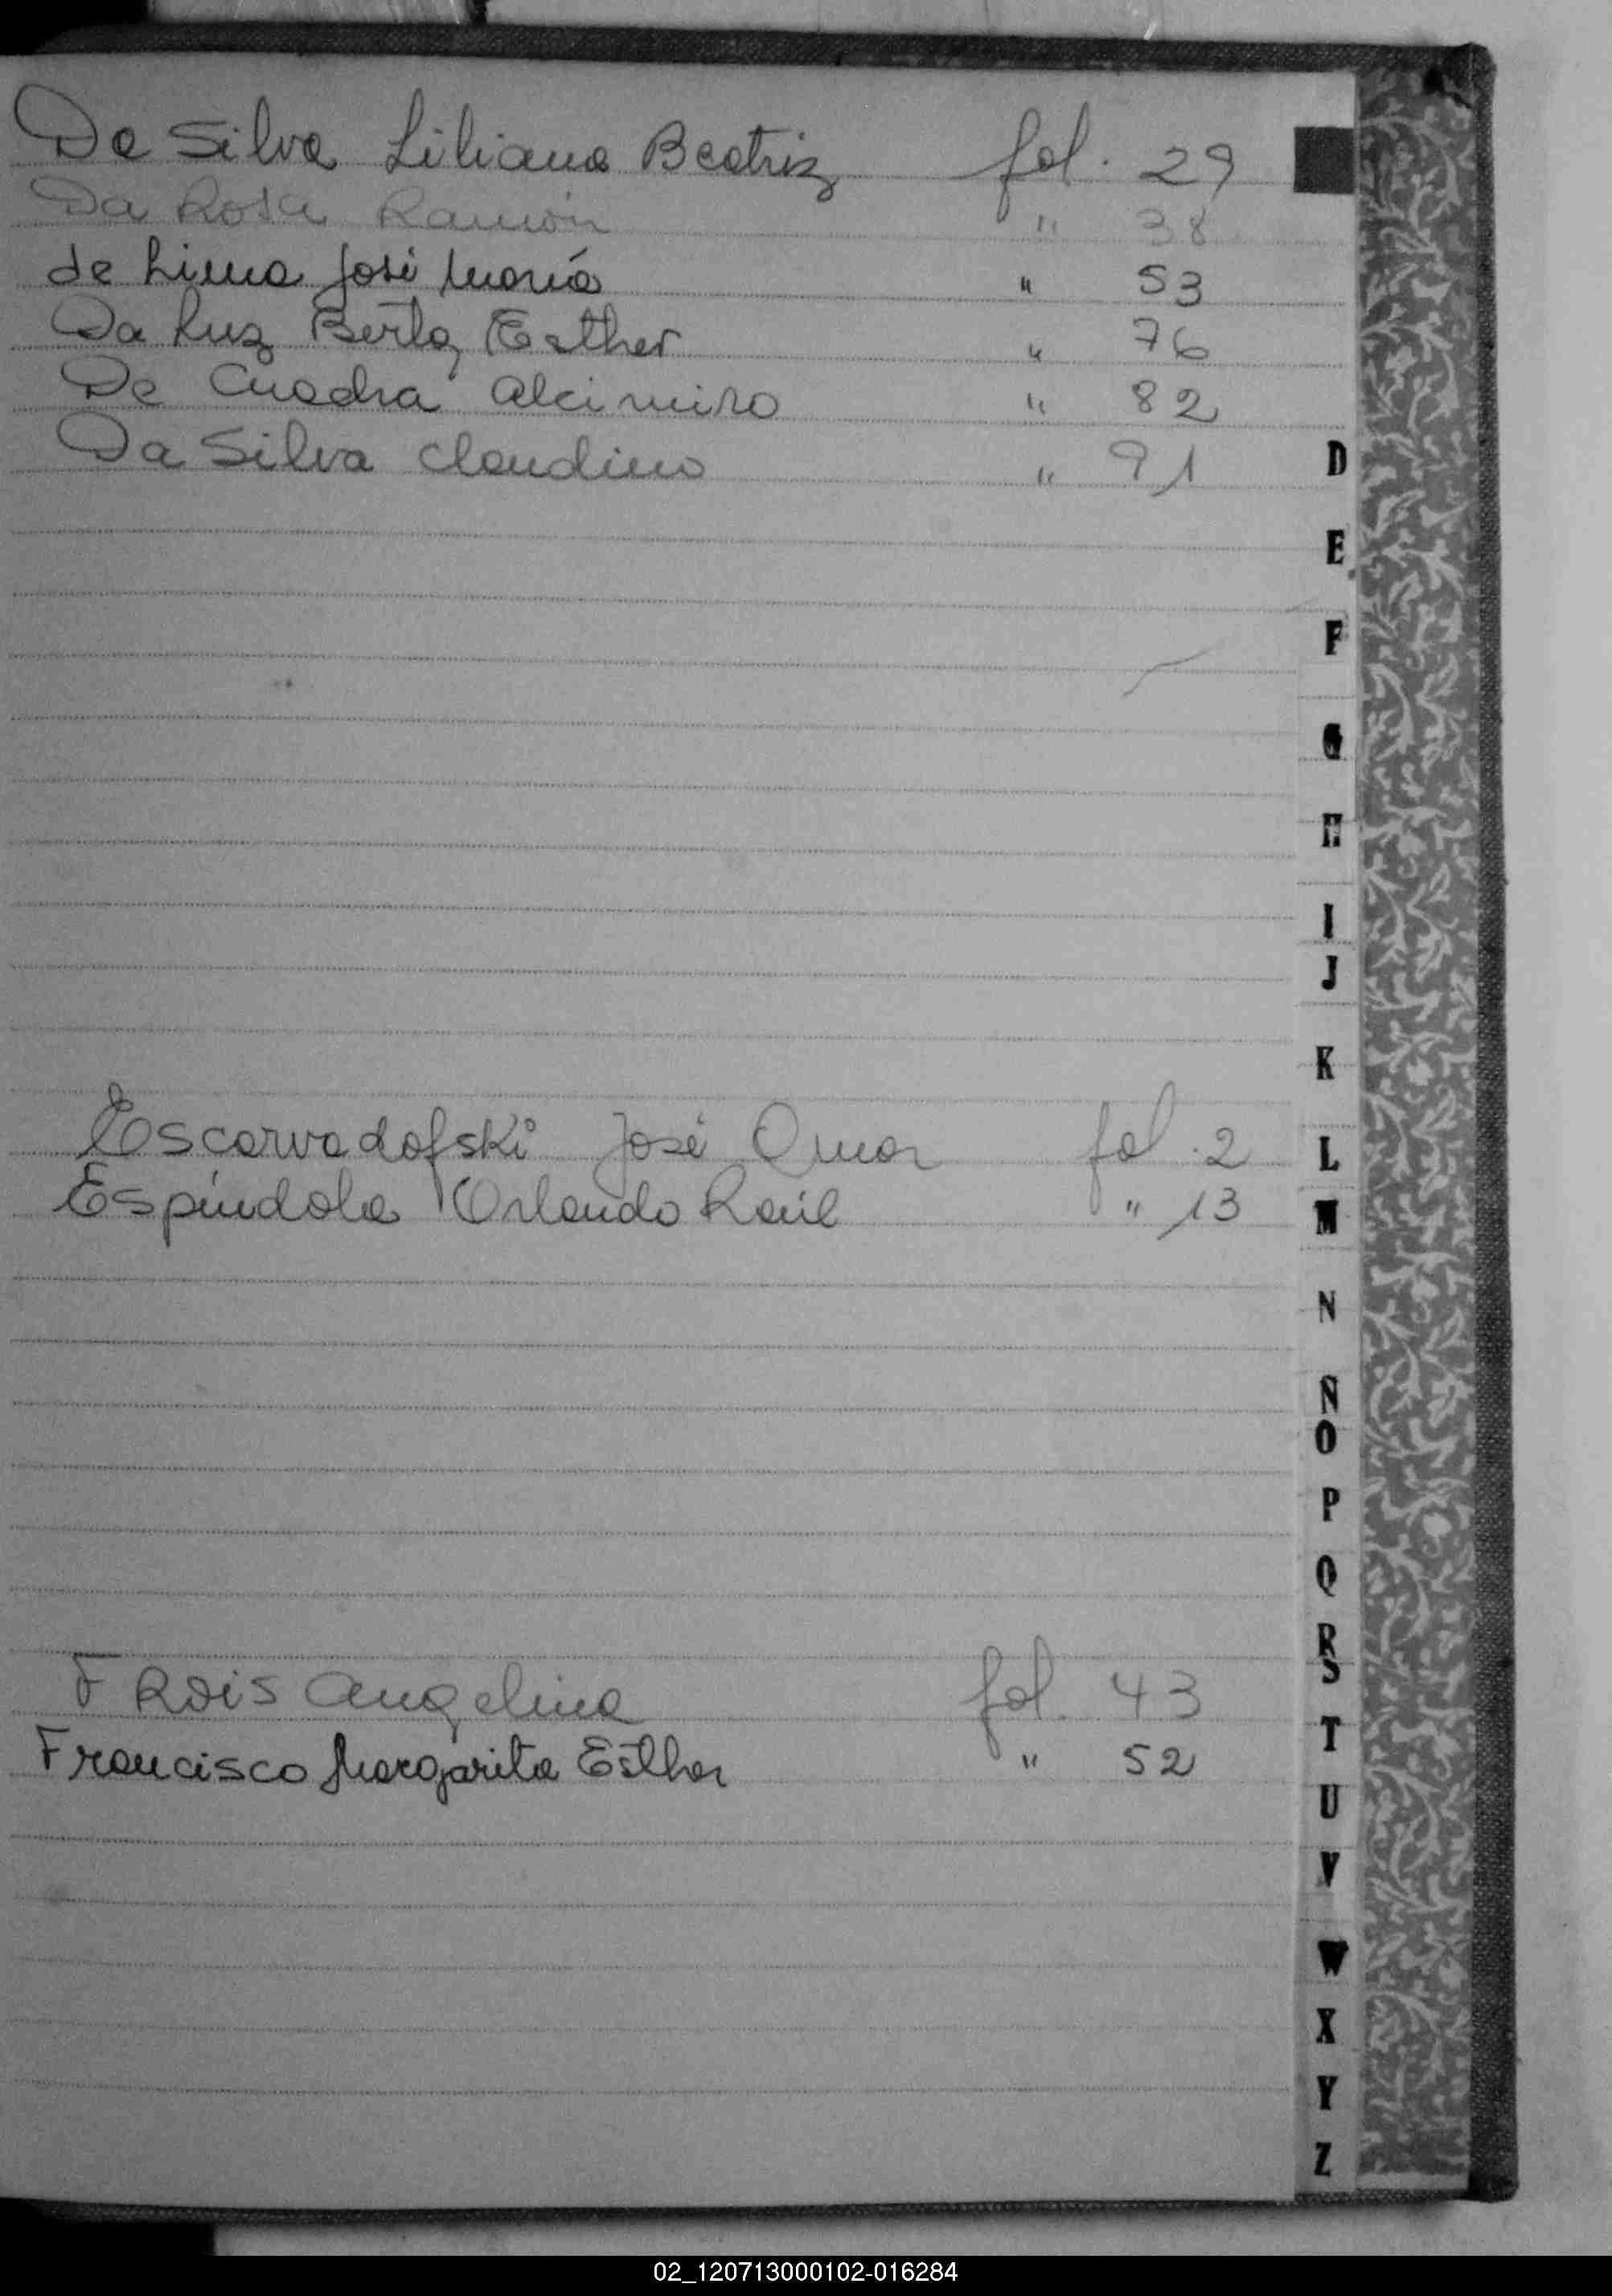 Da Silva Liliana Beatriz fol. 29
Da Rosa Ramón " 38
de Lima José María " 53
Da Luz Berta Esther " 76
De Cuadra Alcimiro " 82
Da Silva Claudino " 91
D
E
F
G
H
I
J
K
Escarvadofski José Omar fol. 2
L
Espíndola Orlando Raúl " 13
M
N
Ñ
O
P
Q
R
S
Frois Angelina fol. 43
T
Francisco Margarita Esther " 52
U
V
W
X
Y
Z
02_120713000102-016284